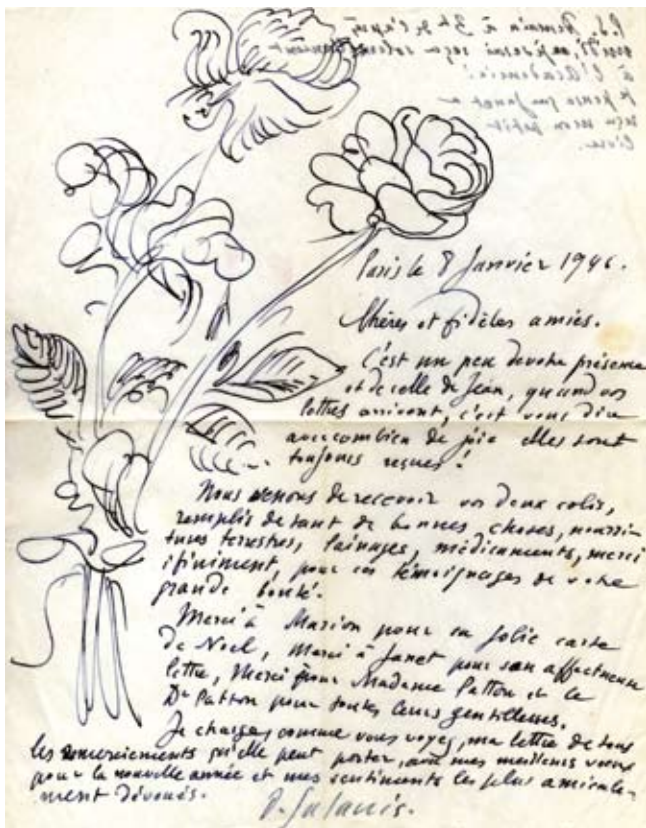 P.S. Demain à 3h de l'après
midi, je serai reçu
à l'Académie!
Je pense que Janet a
reçu mon petit
livre.
Paris le 8 Janvier 1946.
Chères et fidèles amies.
C'est un peu de votre présence
et de celle de Jean, quand vos
lettres arrivent, c'est vous dire
avec combien de joie elles sont
toujours reçues!
Nous venons de recevoir vos deux colis,
remplis de tant de bonnes choses, nourri-
tures terrestres, lainages, médicaments, merci
ifiniment, pour ces témoignages de votre
grande bonté.
Merci à Marion pour sa jolie carte
de Noel, Merci à Janet pour son affectueuse
lettre, Merci pour Madame Patton et le
Dr Patton pour toutes leurs gentillesses.
Je charge, comme vous voyez, ma lettre de tous
les remerciements qu'elle peut porter, avec mes meilleurs vœux
pour la nouvelle année et mes sentiments les plus amicale-
ment dévoués.
D. Galanis.